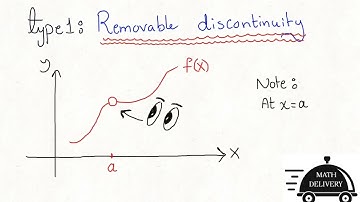 type1: Removable discontinuity
y
f(x)
Note:
At x=a
a
x
MATH
DELIVERY